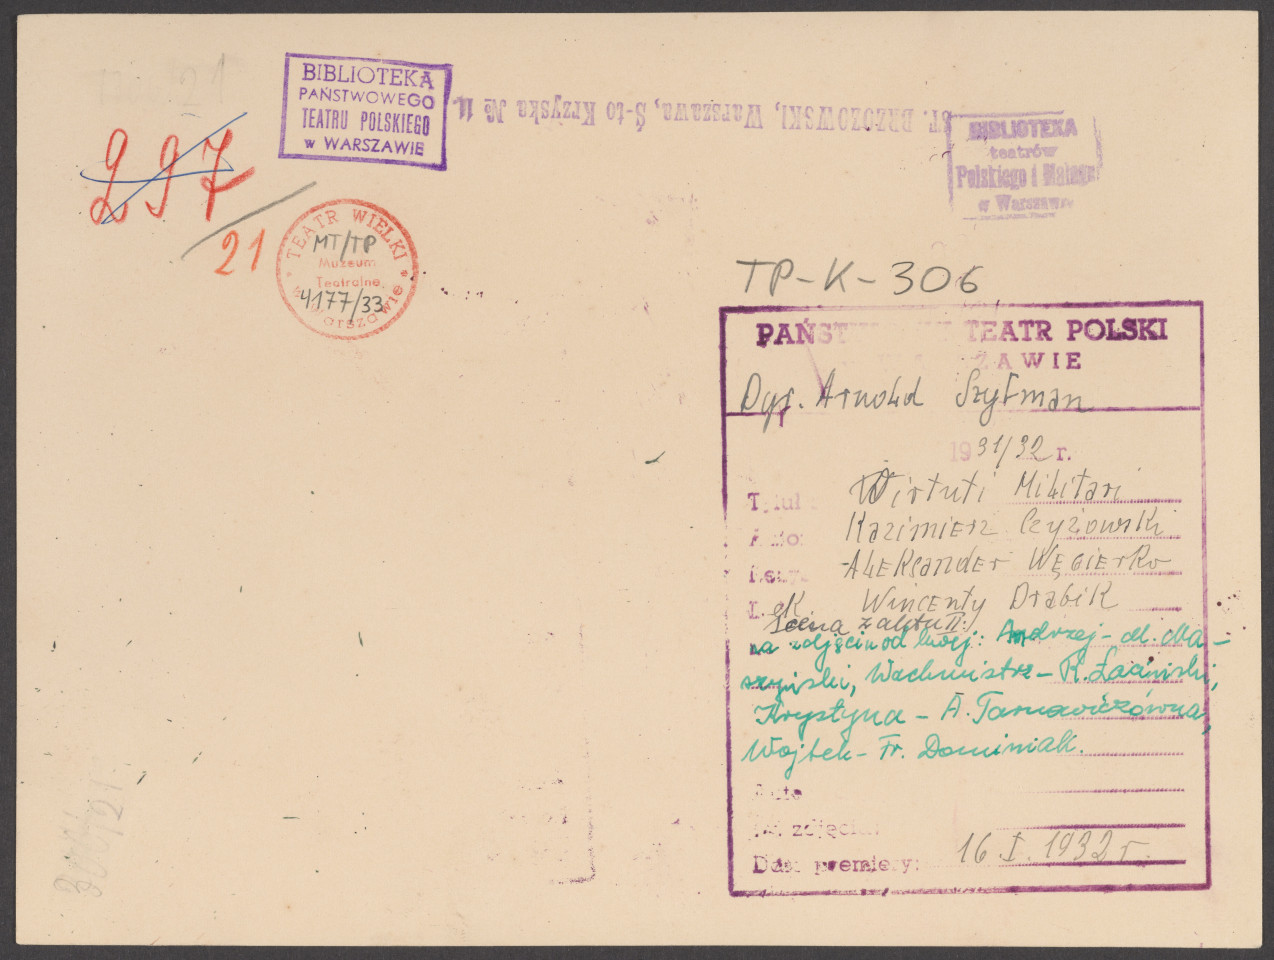 BIBLIOTEKA
PAŃSTWOWEGO
TEATRU POLSKIEGO
w WARSZAWIE
ST. BRZOZOWSKI, Warszawa, Ś-to Krzyska № 11
BIBLIOTEKA
teatrów
Polskiego i Małego
w Warszawie
297
21
TEATR WIELKI
MT/TP
Muzeum
Teatralne
4177/33
w Warszawie
TP-K-306
PAŃSTW TEATR POLSKI
ZAWIE
Dyr. Arnold Szyfman
1931/32 r.
Tytuł Wirtuti Militari
Kazimierz Czyżowski
Aleksander Węgierko
Wincenty Drabik
Scena z aktu II:
na zdjęciu od lewej: Andrzej - M. Ma-
szyński, Wachmistrz - K. Łaciński,
Krystyna - A. Tarnawiczówna,
Wojtek - Fr. Dominiak.
zdjęcia
Data premiery: 16.I.1932 r.